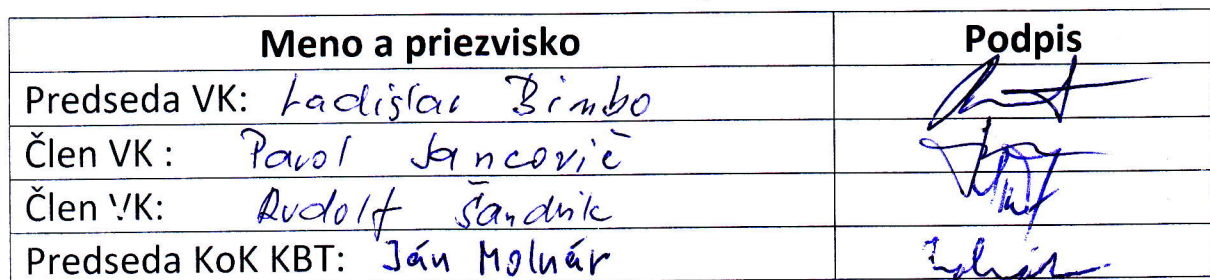 Meno a priezvisko Podpis
Predseda VK: Ladislav Bimbo
Člen VK : Pavol Jancovič
Člen VK: Rudolf Šandrik
Predseda KoK KBT: Ján Molnár